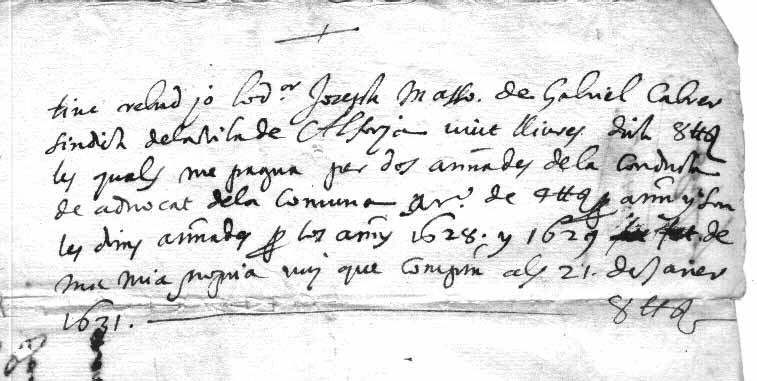 tinc rebud jo lo dor Joseph Masso. de Gabriel Cabrer
sindich de la vila de Alforja vuit lliures dich 8 ℔
les quals me pagua per dos annades de la conducta
de advocat de la comuna a rº. de 4 ℔ p any y son
les dites annades p los anys 1628. y 1629 de
ma mia propia vuy que comptam als 21. de Janer
1631. 8 ℔